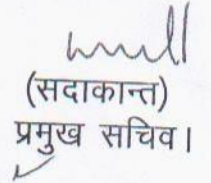 (सदाकान्त)
प्रमुख सचिव।